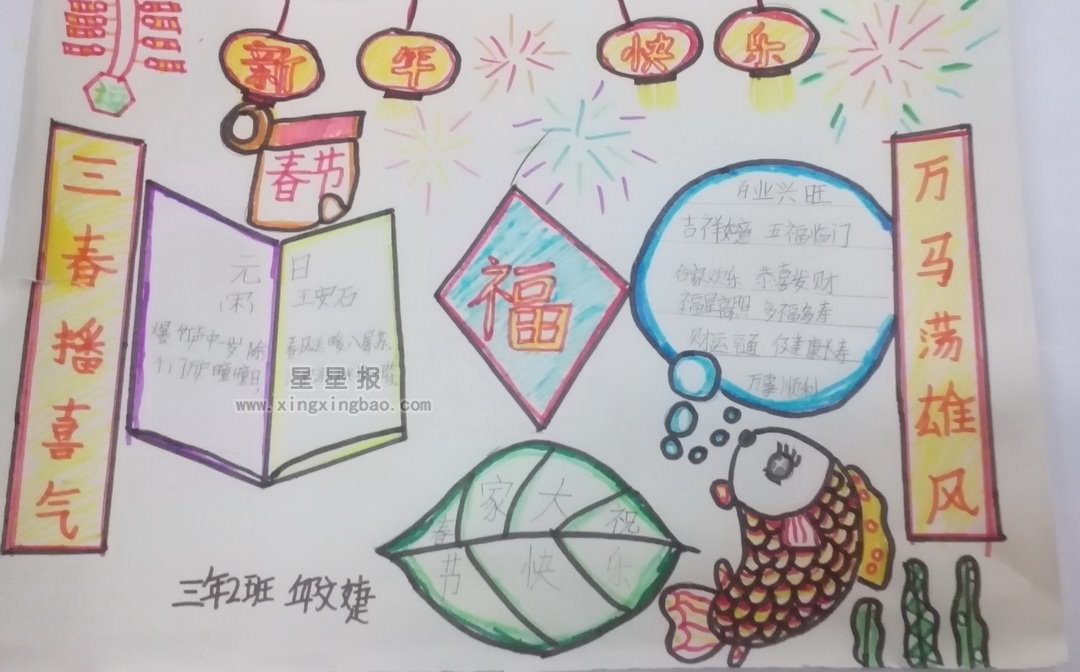 新年快乐
春节
三春播喜气
万马荡雄风
元日
王安石
爆竹声中一岁除
千门万户曈曈日
星星报
www.xingxingbao.com
福
百业兴旺
吉祥如意 五福临门
合家欢乐 恭喜发财
福星高照 多福多寿
财运亨通
万事顺利
祝大家春节快乐
三年2班